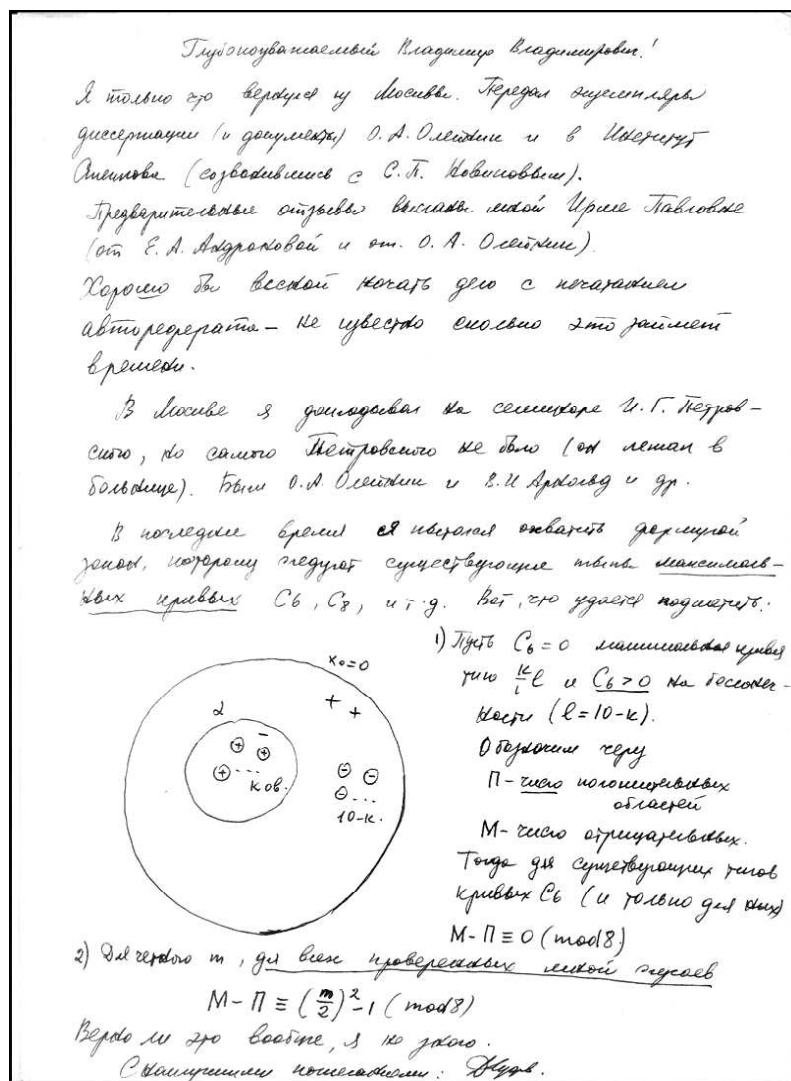 Глубокоуважаемый Владимир Владимирович!
Я только что вернулся из Москвы. Передал экземпляры
диссертации (и документы) О.А.Олейник и в Институт
Стеклова (созвонившись с С.П. Новиковым).
Предварительные отзывы высланы мной Ирме Павловне
(от Е.А. Андроновой и от О.А. Олейник).
Хорошо бы весной начать дело с печатанием
автореферата – не известно сколько это займет
времени.
В Москве я докладывал на семинаре И.Г. Петров-
ского, но самого Петровского не было (он лежал в
больнице). Были О.А. Олейник и В.И Арнольд и др.
В последнее время я пытался охватить формулой
закон, которому следуют существующие типы максималь-
ных кривых C6, C8, и т.д. Вот, что удается подметить:
1) Пусть C6=0 максимальная кривая
типа k/1 l и C6>0 на бесконеч-
ности (l=10-k).
Обозначим через
П-число положительных
областей
М-число отрицательных.
Тогда для существующих типов
кривых C6 (и только для них)
М-П≡0 (mod 8)
x0=0
+ +
2
-
+ +
+ ... k ов.
- -
- ...
10-k.
2) Для четного m, для всех проверенных мной случаев
М-П ≡ (m/2)²-1 (mod 8)
Верно ли это вообще, я не знаю.
С наилучшими пожеланиями: